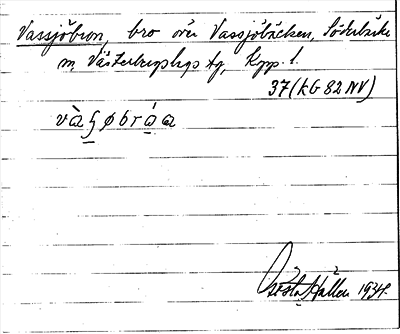 Vassjöbron, bro över Vassjöbäcken, Söderbärke
m, Västerbergslags tg, Kpp. l.
37 (KG 82 NV)
và ʂ ø b r á a
Gösta Hallen 1934.